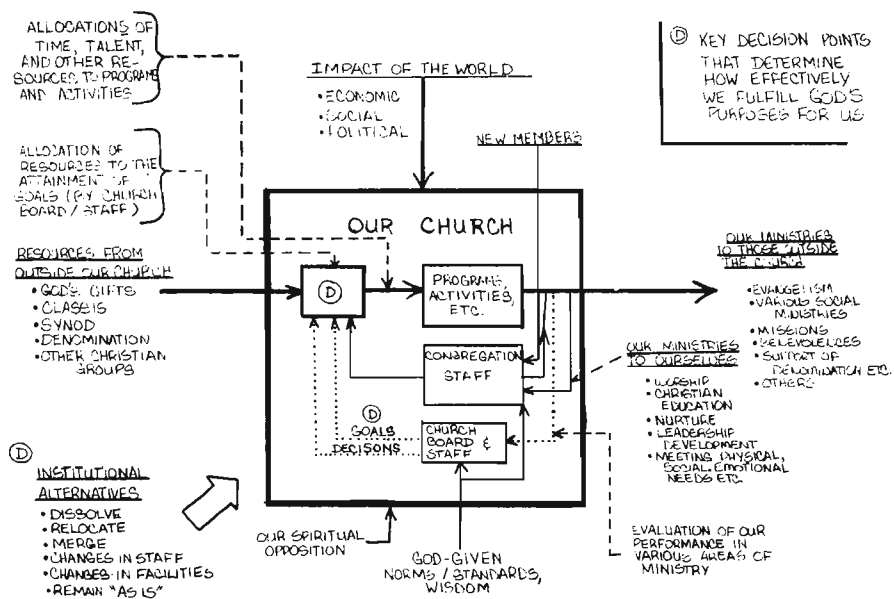 ALLOCATIONS OF
TIME, TALENT,
AND OTHER RE-
SOURCES TO PROGRAMS
AND ACTIVITIES
IMPACT OF THE WORLD
• ECONOMIC
• SOCIAL
• POLITICAL
NEW MEMBERS
Ⓓ KEY DECISION POINTS
THAT DETERMINE
HOW EFFECTIVELY
WE FULFILL GOD'S
PURPOSES FOR US
ALLOCATION OF
RESOURCES TO THE
ATTAINMENT OF
GOALS (BY CHURCH
BOARD / STAFF)
OUR CHURCH
RESOURCES FROM
OUTSIDE OUR CHURCH
• GOD'S GIFTS
• CLASSIS
• SYNOD
• DENOMINATION
• OTHER CHRISTIAN
GROUPS
Ⓓ
PROGRAMS,
ACTIVITIES,
ETC.
CONGREGATION
STAFF
Ⓓ
GOALS
DECISONS
CHURCH
BOARD &
STAFF
OUR MINISTRIES
TO THOSE OUTSIDE
THE CHURCH
• EVANGELISM
• VARIOUS SOCIAL
MINISTRIES
• MISSIONS
• BENEVOLENCES
• SUPPORT OF
DENOMINATION ETC.
• OTHERS
OUR MINISTRIES
TO OURSELVES
• WORSHIP
• CHRISTIAN
EDUCATION
• NURTURE
• LEADERSHIP
DEVELOPMENT
• MEETING PHYSICAL,
SOCIAL, EMOTIONAL
NEEDS ETC
Ⓓ
INSTITUTIONAL
ALTERNATIVES
• DISSOLVE
• RELOCATE
• MERGE
• CHANGES IN STAFF
• CHANGES IN FACILITIES
• REMAIN "AS IS"
OUR SPIRITUAL
OPPOSITION
GOD-GIVEN
NORMS / STANDARDS,
WISDOM
EVALUATION OF OUR
PERFORMANCE IN
VARIOUS AREAS OF
MINISTRY